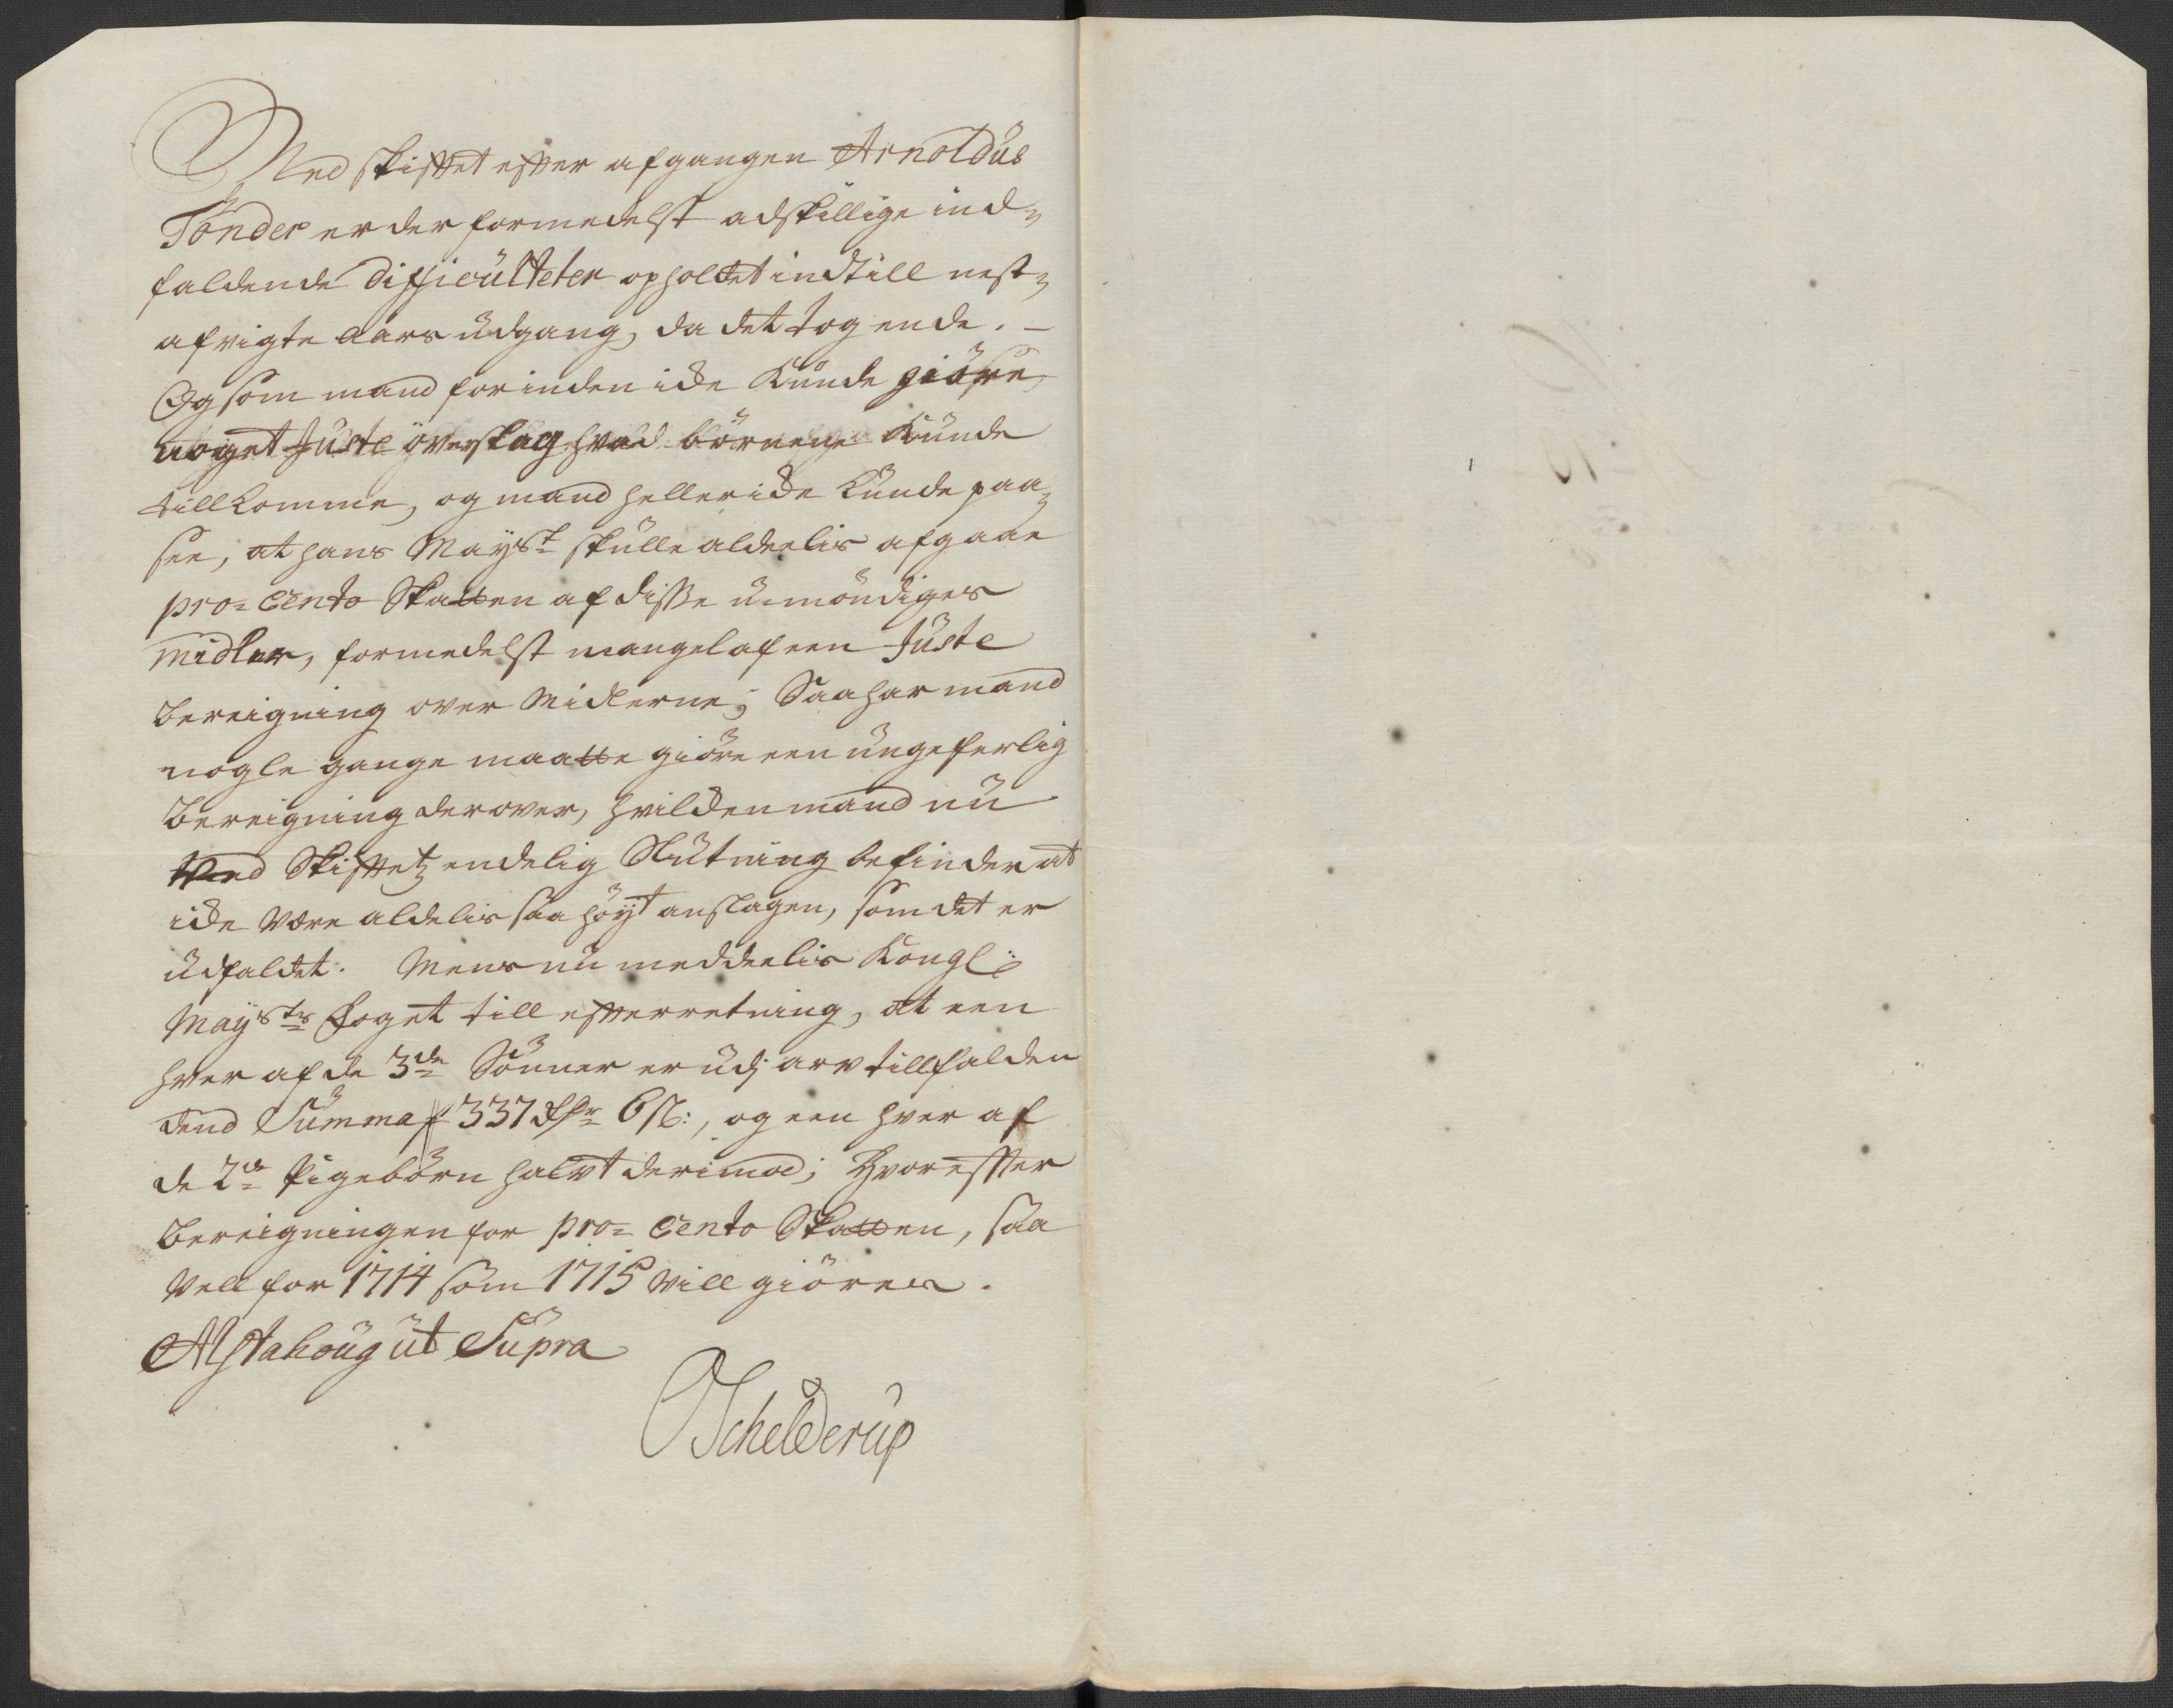 Med skifftet effter afgangen Arnoldus
Tönder er der formedelst adskillige ind-
faldende difficulteter opholdet indtill nest-
afvigte aars udgang, da det tog ende. -
Og som mand forinden icke kunde giöre
noget Juste överslag hvad börnene kunde
tillkomme, og mand heller icke kunde paa-
see, at hans Mayst skulle aldeelis afgaae
pro-cento Skatten af disse umöndiges
midler, formedelst mangel af een Juste
bereigning over Midlerne; Saa har mand
nogle gange maatte giöre een ungeferlig
bereigning derover, hvilcken mand nu
Ved Skifftetz endelig Slutning befinder at
icke være aldelis saa höyt anslagen, som det er
udfaldet. Mens nu meddeelis Kongl:
Maysts Foget till effterretning, at een
hver af de 3de Sönner er udj arv tillfalden
dend Summa 337 Rdr 6 s:, og een hver af
de 2de Pigebörn halvt derimod; Hvoreffter
bereigningen for pro-cento Skatten, saa
Vell for 1714 som 1715 vill giöres.
Alstahoug ut Supra
OSchelderup